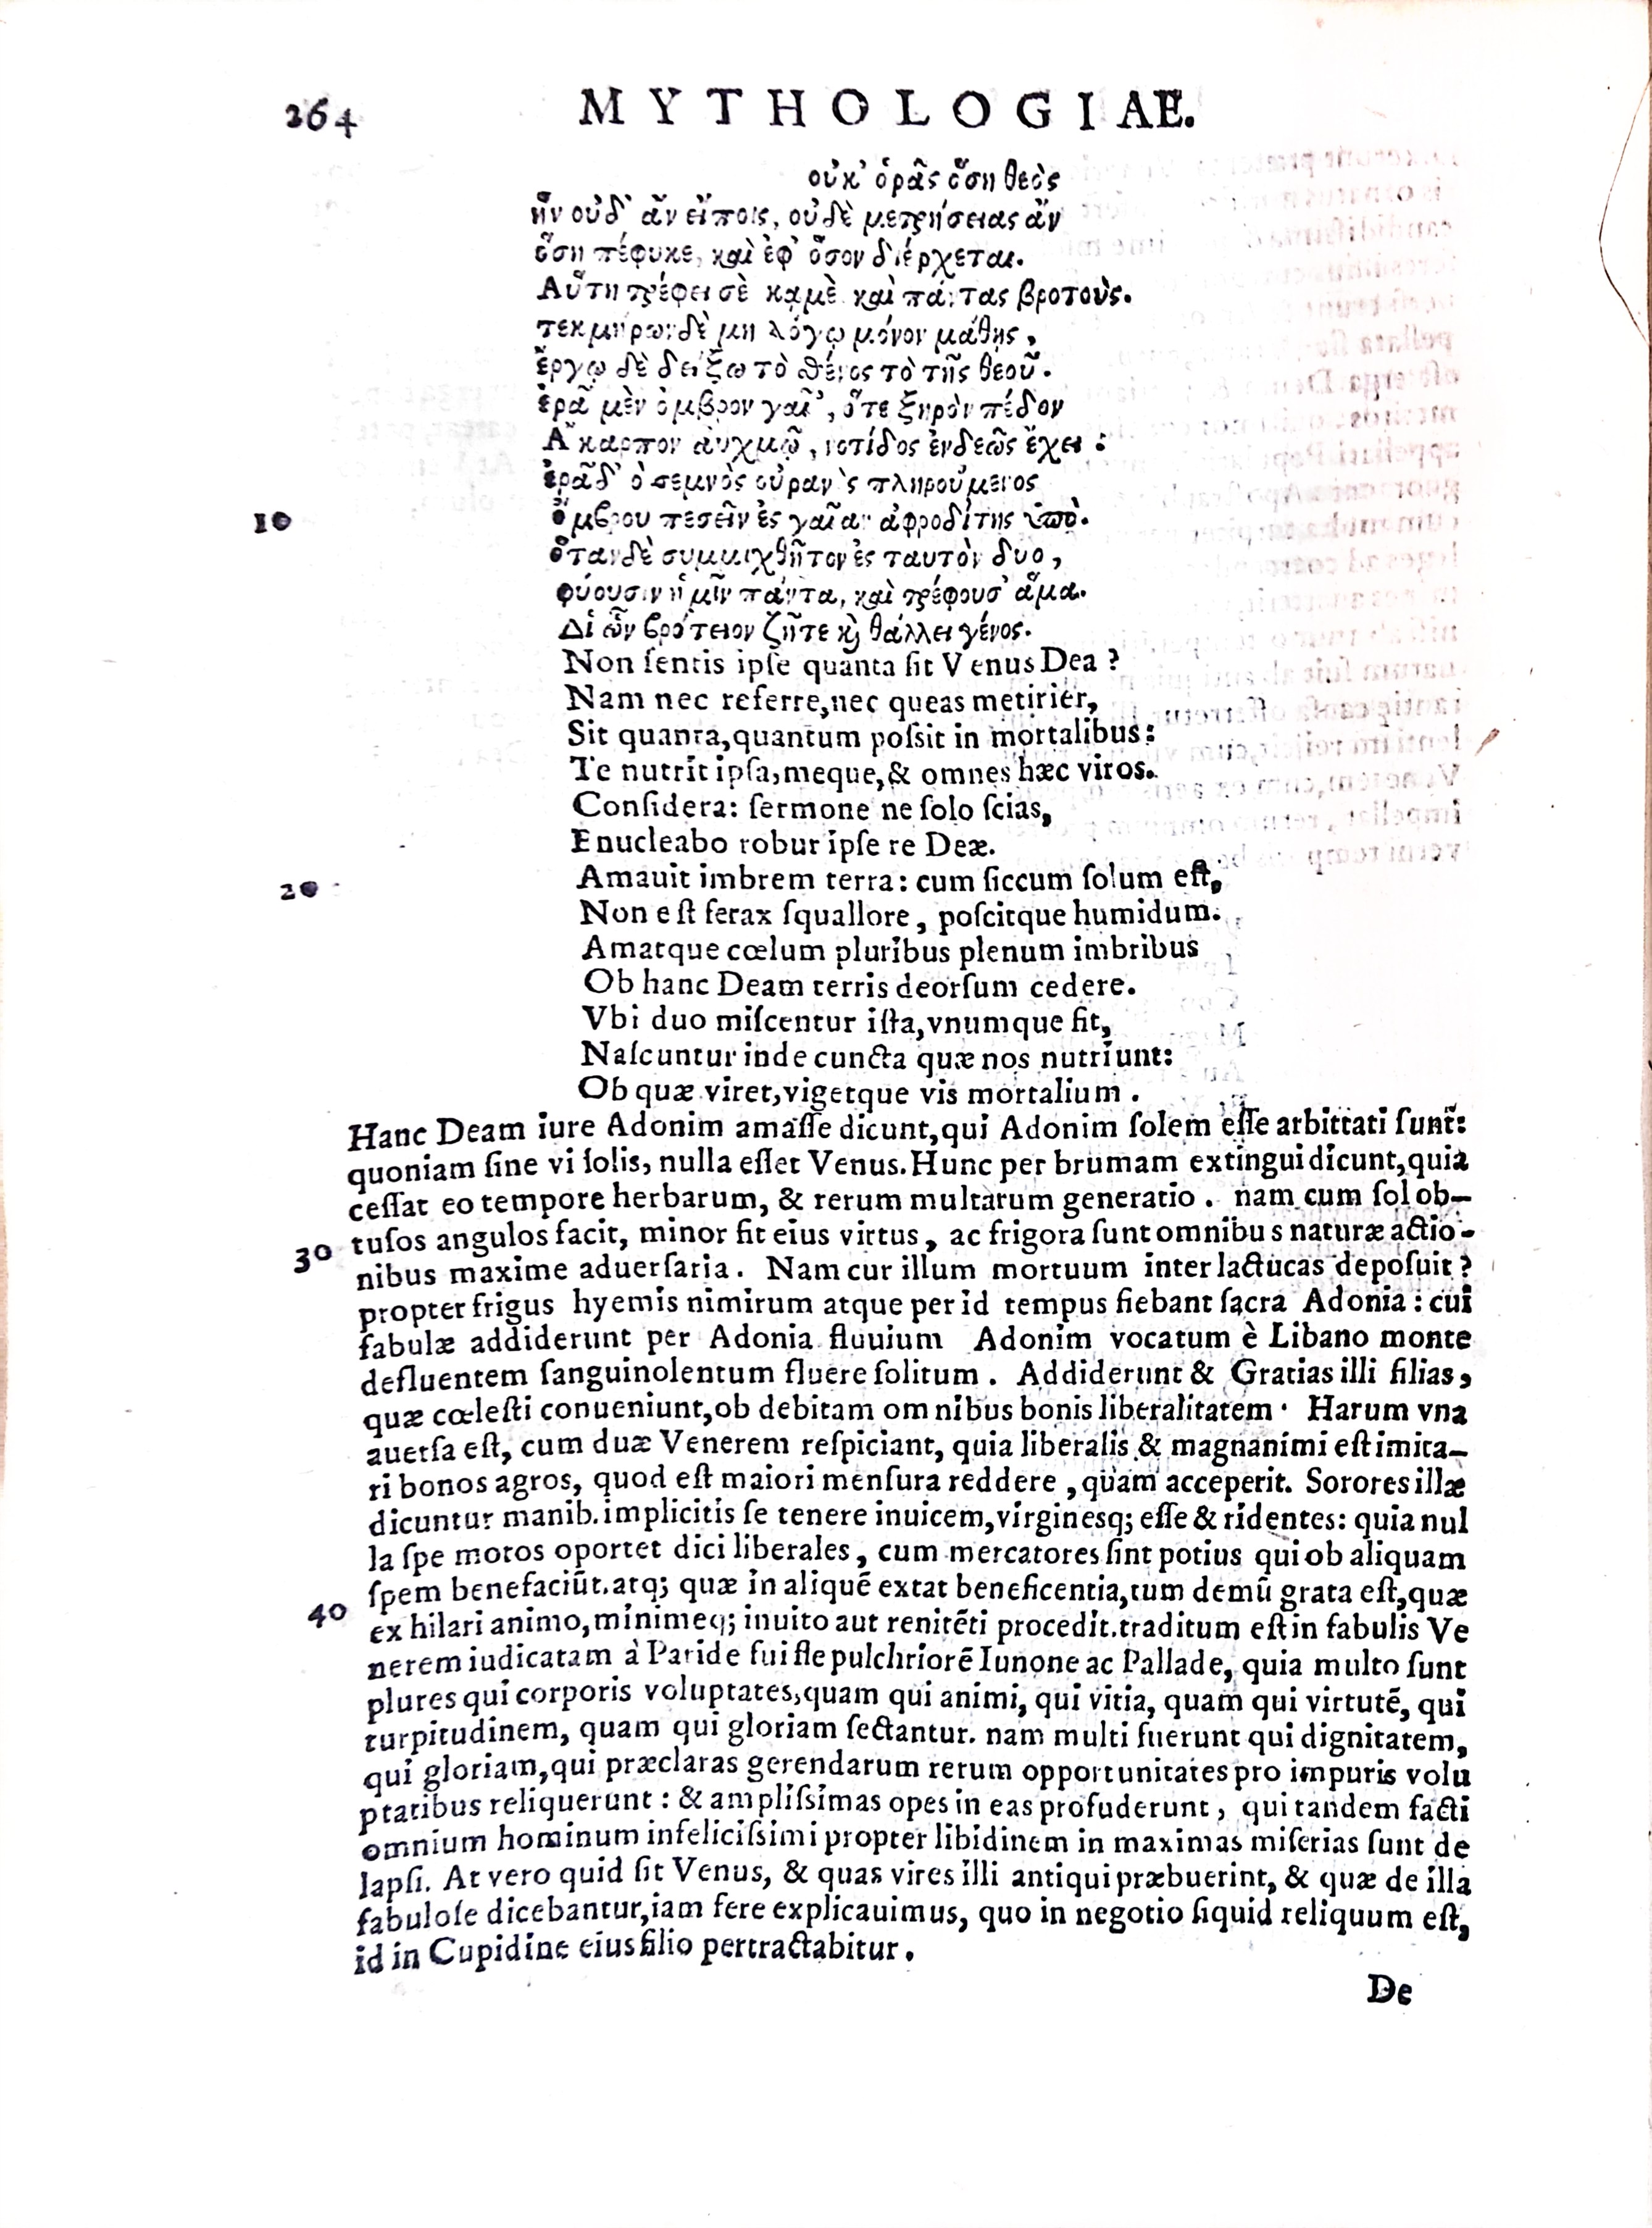 264 MYTHOLOGIAE.
οὐκ' ὁρᾷς ὅση θεὸς
ἣν οὐδ' ἂν εἴποις, οὐδὲ μετρήσειας ἂν
ὅση πέφυκε, καὶ ἐφ' ὅσον διέρχεται.
Αὕτη τρέφει σὲ καμὲ καὶ πάντας βροτοὺς.
τεκμήρων δὲ μη λόγῳ μόνον μάθης,
ἔργῳ δὲ δείξω τὸ σθένος τὸ τῆς θεοῦ.
ἐρᾷ μὲν ὀμβρον γαῖ', ὅτε ξηρὸν πέδον
Ἄκαρπον ἀυχμῷ, νοτίδος ἐνδεῶς ἔχει:
ἐρᾷ δ' ὁ σεμνὸς οὐρανὸς πληρούμενος
10 ὄμβρου πεσεῖν ἐς γαῖαν ἀφροδίτης ὑπὸ.
ὅταν δὲ συμμιχθῆτον ἐς ταυτὸν δυο,
φύουσιν ἡμῖν πάντα, καὶ τρέφουσ' ἅμα.
Δἰ ὧν βρότειον ζῆτε καὶ θάλλει γένος.
Non ſentis ipſe quanta ſit Venus Dea?
Nam nec referre,nec queas metirier,
Sit quanta,quantum poſsit in mortalibus:
Te nutrit ipſa,meque,& omnes hæc viros.
Conſidera: ſermone ne ſolo ſcias,
Enucleabo robur ipſe re Deæ.
20 Amauit imbrem terra: cum ſiccum ſolum eſt,
Non eſt ferax ſquallore, poſcitque humidum.
Amatque cœlum pluribus plenum imbribus
Ob hanc Deam terris deorſum cedere.
Vbi duo miſcentur iſta,vnumque fit,
Naſcuntur inde cuncta quæ nos nutriunt:
Ob quæ viret,vigetque vis mortalium.
Hanc Deam iure Adonim amaſſe dicunt,qui Adonim ſolem eſſe arbittati ſunt:
quoniam ſine vi ſolis, nulla eſſet Venus.Hunc per brumam extingui dicunt,quia
ceſſat eo tempore herbarum, & rerum multarum generatio. nam cum ſol ob-
30 tuſos angulos facit, minor fit eius virtus, ac frigora ſunt omnibus naturæ actio-
nibus maxime aduerſaria. Nam cur illum mortuum inter lactucas depoſuit?
propter frigus hyemis nimirum atque per id tempus fiebant ſacra Adonia: cui
fabulæ addiderunt per Adonia fluuium Adonim vocatum è Libano monte
defluentem ſanguinolentum fluere ſolitum. Addiderunt & Gratias illi filias,
quæ cœleſti conueniunt,ob debitam omnibus bonis liberalitatem. Harum vna
auerſa eſt, cum duæ Venerem reſpiciant, quia liberalis & magnanimi eſt imita-
ri bonos agros, quod eſt maiori menſura reddere, quàm acceperit. Sorores illæ
dicuntur manib.implicitis ſe tenere inuicem,virginesq; eſſe & ridentes: quia nul
la ſpe motos oportet dici liberales, cum mercatores ſint potius qui ob aliquam
ſpem benefaciūt.atq; quæ in aliquē extat beneficentia,tum demū grata eſt,quæ
40 ex hilari animo,minimeq; inuito aut renitēti procedit.traditum eſt in fabulis Ve
nerem iudicatam à Paride fuiſſe pulchriorē Iunone ac Pallade, quia multo ſunt
plures qui corporis voluptates,quam qui animi, qui vitia, quam qui virtutē, qui
turpitudinem, quam qui gloriam ſectantur. nam multi fuerunt qui dignitatem,
qui gloriam,qui præclaras gerendarum rerum opportunitates pro impuris volu
ptatibus reliquerunt: & ampliſsimas opes in eas profuderunt, qui tandem facti
omnium hominum infeliciſsimi propter libidinem in maximas miſerias ſunt de
lapſi. At vero quid ſit Venus, & quas vires illi antiqui præbuerint, & quæ de illa
fabuloſe dicebantur,iam fere explicauimus, quo in negotio ſiquid reliquum eſt,
id in Cupidine eius filio pertractabitur.
De